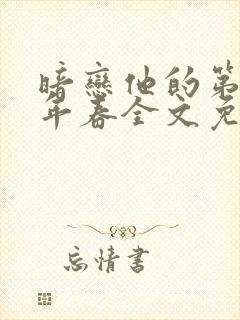 暗戀他的第
年春全文免
忘情書